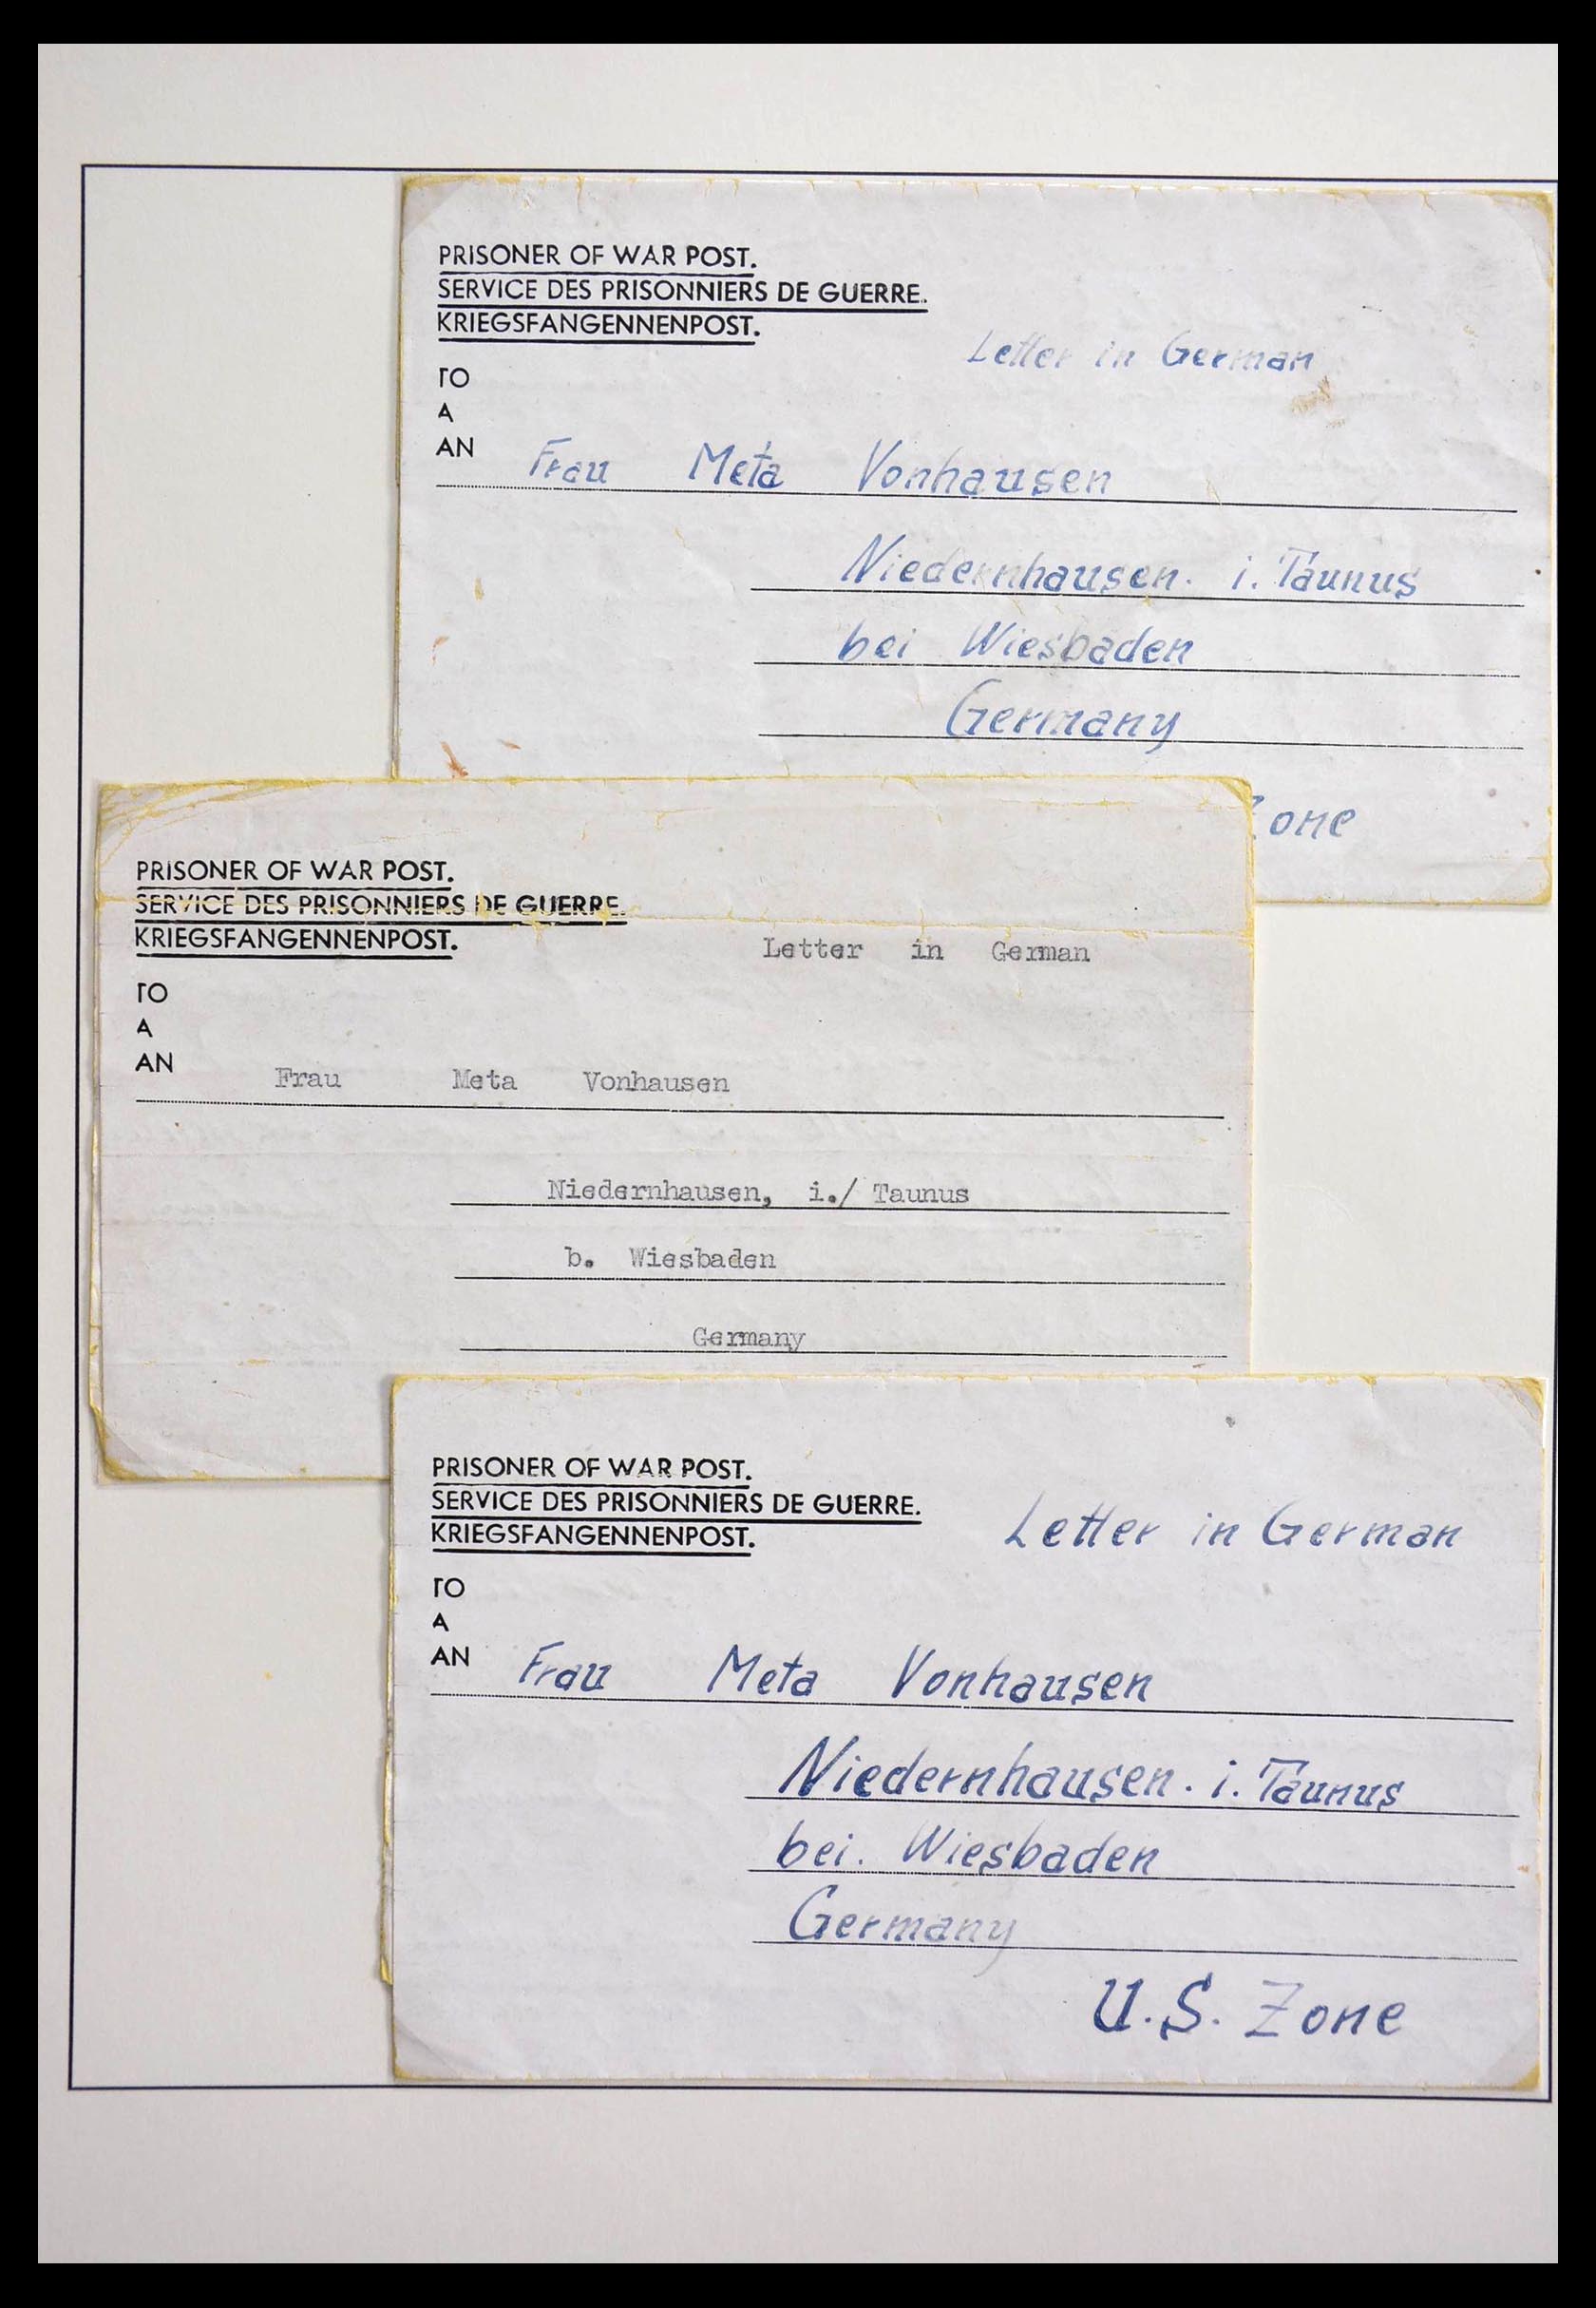 PRISONER OF WAR POST.
SERVICE DES PRISONNIERS DE GUERRE.
KRIEGSFANGENNENPOST.
Letter in German
TO
A
AN
Frau Meta Vonhausen
Niedernhausen. i. Taunus
bei Wiesbaden
Germany
Zone
PRISONER OF WAR POST.
SERVICE DES PRISONNIERS DE GUERRE.
KRIEGSFANGENNENPOST.
Letter in German
TO
A
AN
Frau Meta Vonhausen
Niedernhausen, i./ Taunus
b. Wiesbaden
Germany
PRISONER OF WAR POST.
SERVICE DES PRISONNIERS DE GUERRE.
KRIEGSFANGENNENPOST.
Letter in German
TO
A
AN
Frau Meta Vonhausen
Niedernhausen. i. Taunus
bei. Wiesbaden
Germany
U.S. Zone